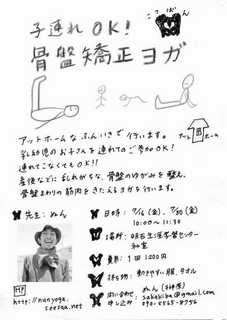 子連れOK!
こつばん
骨盤矯正ヨガ
アットホームなふんいきで行います。
アットホーム
乳幼児のお子さんを連れてのご参加OK!
連れてこなくてもOK!!
産後などに乱れがちな、骨盤のゆがみを整え、
骨盤まわりの筋肉をきたえるヨガを行います。
先生:ぬん
日時:7/16(金)、7/30(金)
10:00〜11:30
場所:明石生涯学習センター
和室
費用:1回1200円
持ち物:動きやすい服、タオル
HP
http://nunyoga.
seesaa.net
問い合わせ
申し込み
ぬん
@gmail.com